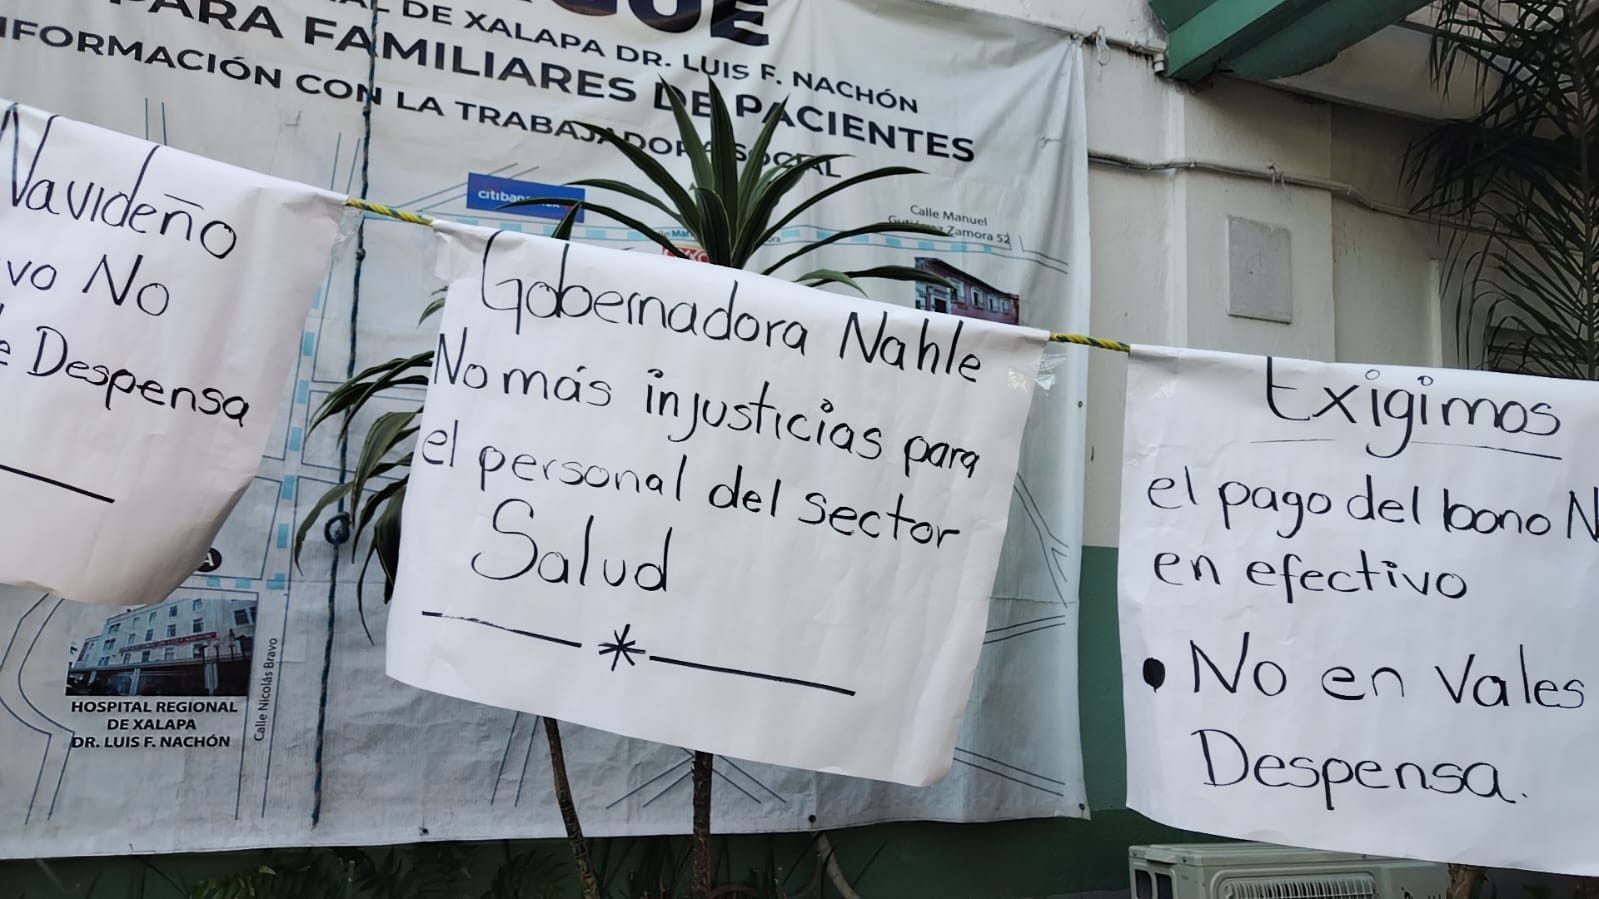 DE XALAPA DR. LUIS F. NACHÓN
PARA FAMILIARES DE PACIENTES
INFORMACIÓN CON LA TRABAJADORA SOCIAL
citibanamex
Calle Manuel
Gutiérrez Zamora 52
HOSPITAL REGIONAL
DE XALAPA
DR. LUIS F. NACHÓN
Calle Nicolás Bravo
A
Navideño
vo No
e Despensa
Gobernadora Nahle
No más injusticias para
el personal del sector
Salud
Exigimos
el pago del bono N
en efectivo
• No en Vales
Despensa.